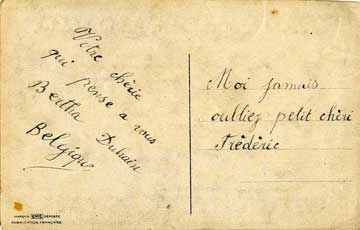 Votre chèrie
qui pense a vous
Bertha Duhain
Belgique
Moi jamais
oulliez petit chèri
Frèdèric
MARQUE DÉPOSÉE
FABRICATION FRANÇAISE